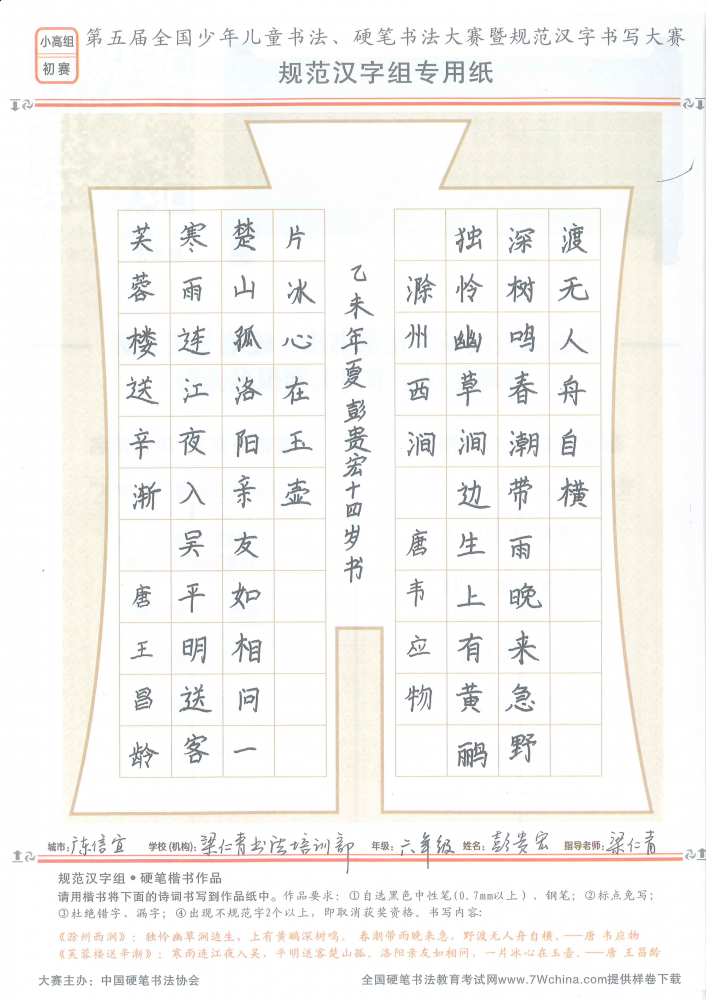 小高组
初赛
第五届全国少年儿童书法、硬笔书法大赛暨规范汉字书写大赛
规范汉字组专用纸
滁州西涧 唐 韦应物
独怜幽草涧边生上有黄鹂
深树鸣春潮带雨晚来急野
渡无人舟自横
乙未年夏彭贵宏十四岁书
芙蓉楼送辛渐 唐王昌龄
寒雨连江夜入吴平明送客
楚山孤洛阳亲友如相问一
片冰心在玉壶
城市: 广东信宜 学校(机构): 梁仁青书法培训部 年级: 六年级 姓名: 彭贵宏 指导老师: 梁仁青
规范汉字组•硬笔楷书作品
请用楷书将下面的诗词书写到作品纸中。作品要求：①自选黑色中性笔(0.7mm以上)、钢笔；②标点免写；
③杜绝错字、漏字；④出现不规范字2个以上，即取消获奖资格。书写内容：
《滁州西涧》：独怜幽草涧边生，上有黄鹂深树鸣。 春潮带雨晚来急，野渡无人舟自横。——唐 韦应物
《芙蓉楼送辛渐》：寒雨连江夜入吴，平明送客楚山孤。洛阳亲友如相问，一片冰心在玉壶。——唐 王昌龄
大赛主办：中国硬笔书法协会 全国硬笔书法教育考试网www.7Wchina.com提供样卷下载